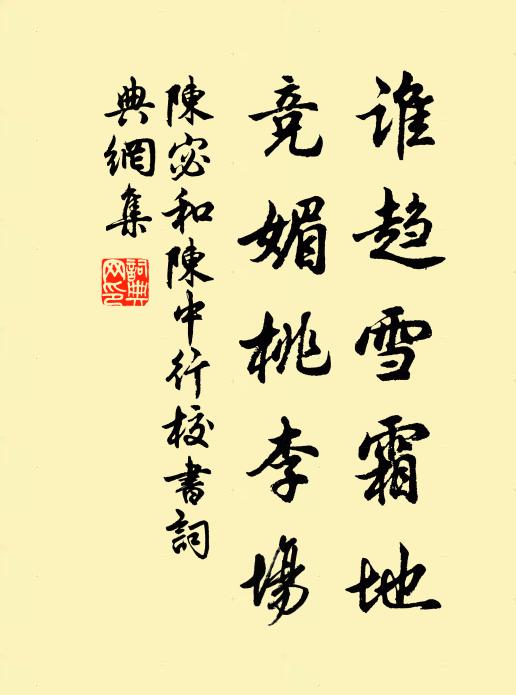 谁趋雪霜地
竞媚桃李場
陳宓和陳中行校書詞
典網集
詞典网印